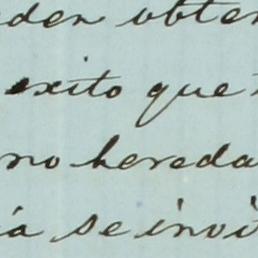 den obten
exito que
no hereda
a se invi